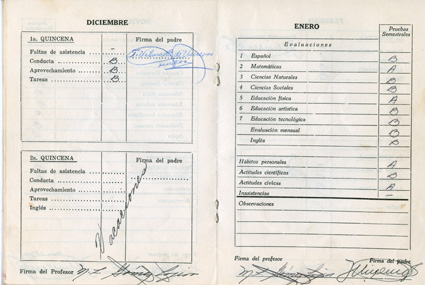 DICIEMBRE
1a. QUINCENA
Firma del padre
Faltas de asistencia —
Conducta B
Aprovechamiento B
Tareas B
2a. QUINCENA
Firma del padre
Faltas de asistencia
Conducta
Aprovechamiento
Tareas
Inglés
Vacaciones
Firma del Profesor
ENERO
Pruebas
Semestrales
Evaluaciones
1 Español B
2 Matemáticas A
3 Ciencias Naturales B
4 Ciencias Sociales B
5 Educación física A
6 Educación artística B
7 Educación tecnológica B
Evaluación mensual B
Inglés B
Hábitos personales A
Actitudes científicas B
Actitudes cívicas A
Inasistencias —
Observaciones
Firma del profesor
Firma del padre